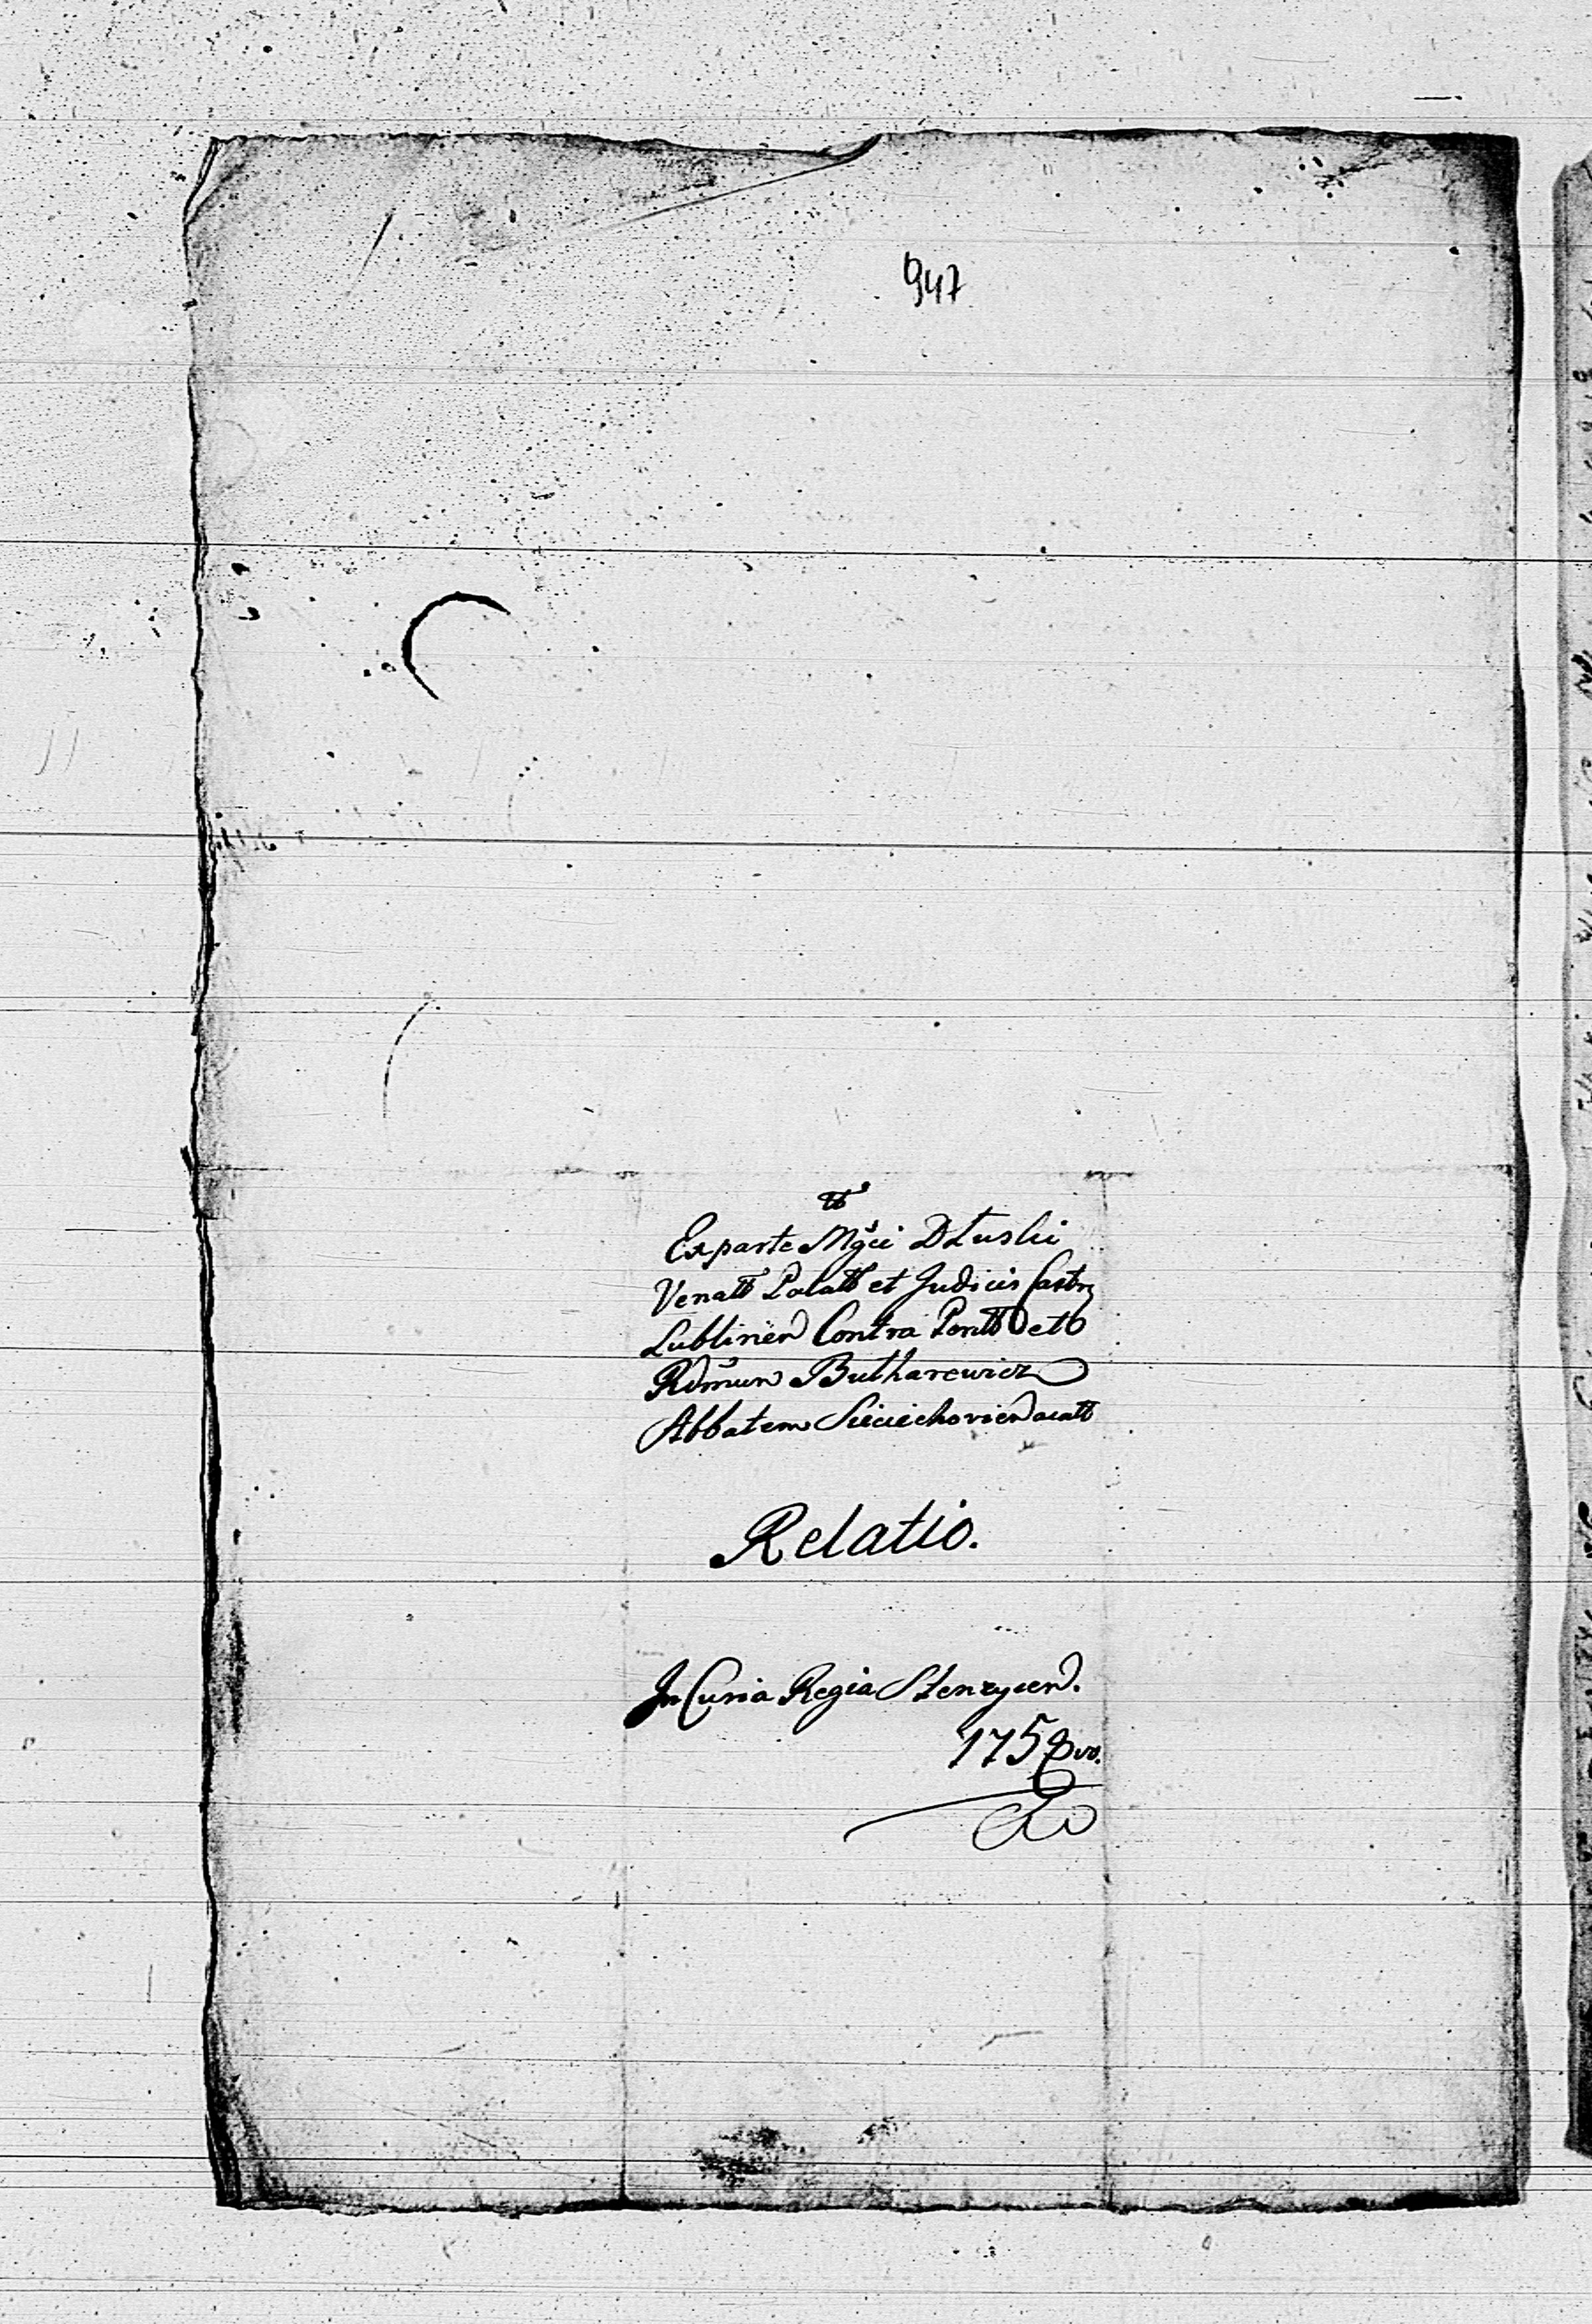 947
Ex parte Mgci Dłuski
Venatt Palatt et Judicis Castr
Lublinen Contra Pontt Dett
Rdmum Butharewicz
Abbatem Sieciechovien acatt
Relatio.
In Curia Regia Stenzycen.
1758vo.